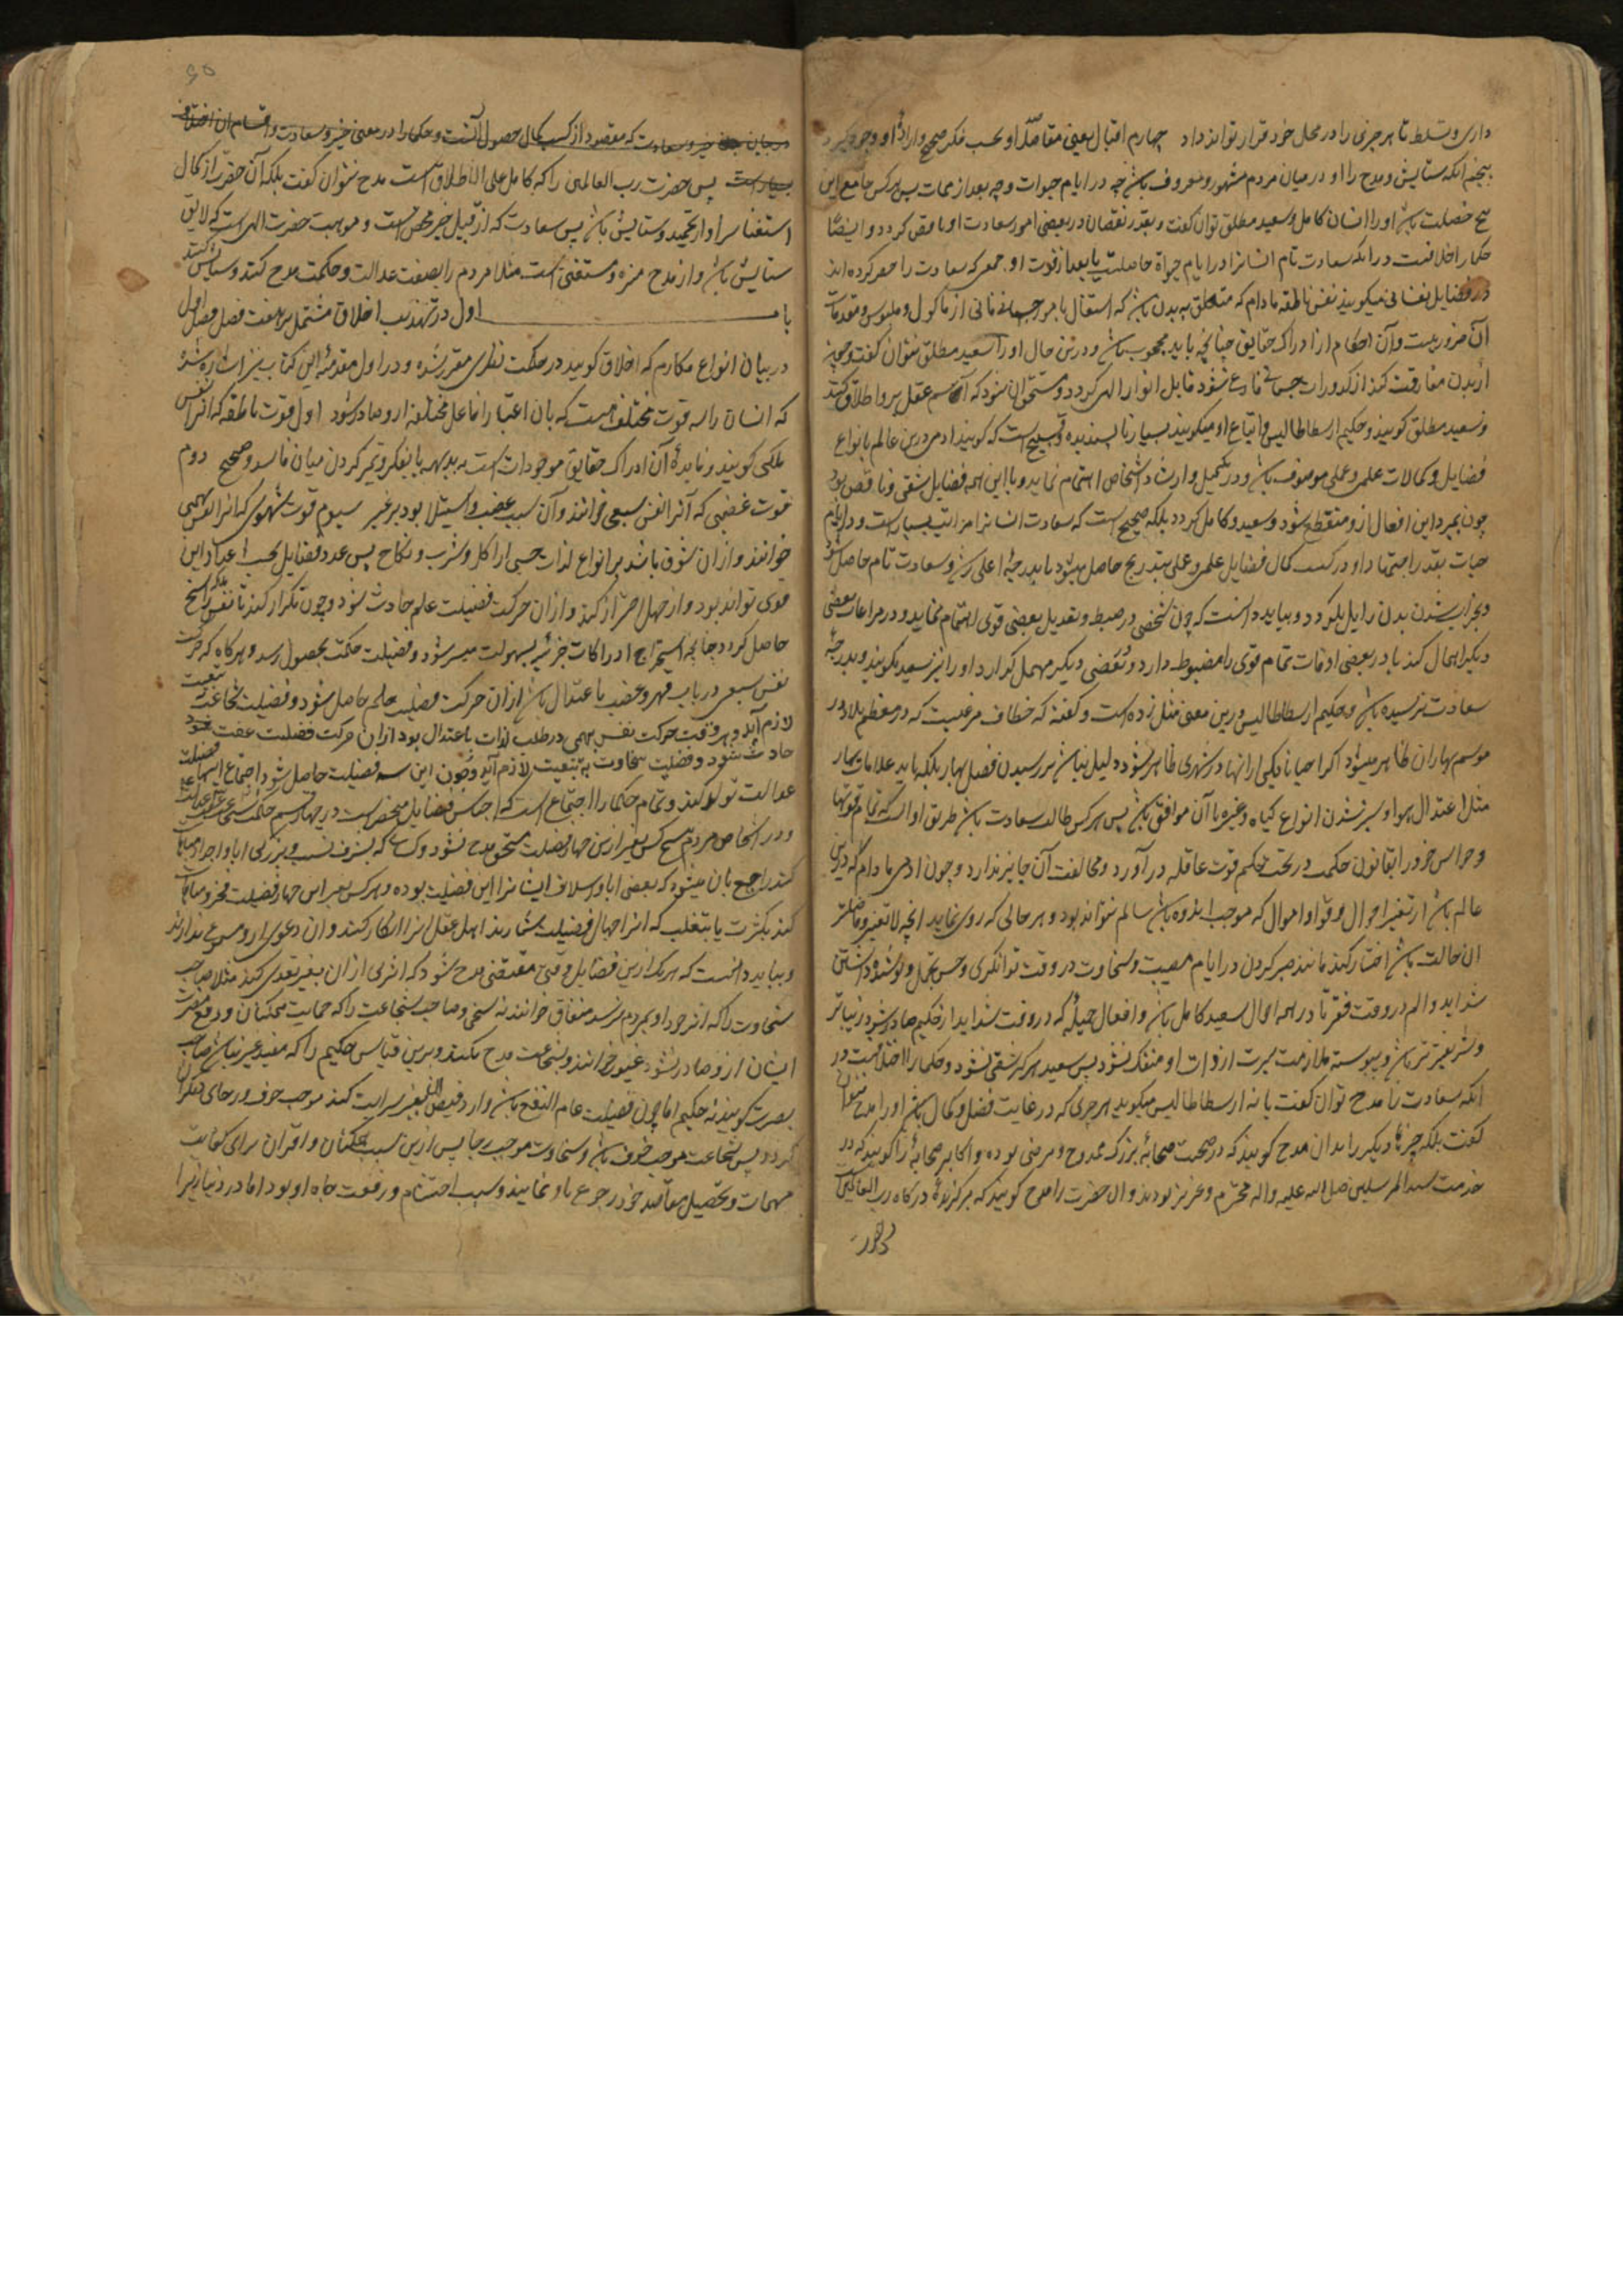 داری و تسلط تا هر چیزی را در محل خود قرار تواند داد چهارم اقبال یعنی مقاصد او بحسب فکر صحیح و اراده او وجود گیرد
پنجم انکه ستایش و مدح را او در میان مردم مشهور و معروف باشد چه در ایام حیوات و چه بعد از ممات پس هر کس جامع این
پنج خصلت باشد او را انسان کامل و سعید مطلق توان گفت و بقدر نقصان در بعضی امور سعادت او ناقص گردد و ایضا
حکما را خلافست در انکه سعادت تام انسانرا در ایام حیوة حاصلست یا بعد از فوت او جمعی که سعادت را حصر کرده اند
در فضایل نفسانی میگویند نفس ناطقه مادام که متعلق به بدن باشد که اشتغال بامور جسمانی از ماکول و ملبوس و مقدمات
آن ضروریست و آن احکام از ادراک حقایق چنانچه باید محجوب باشد و درین حال او را سعید مطلق نتوان گفت و چون
از بدن مفارقت کند از کدورات جسمانی فارغ شود قابل انوار الهی گردد و مستحق ان شود که اسم عقل برو اطلاق کنند
و سعید مطلق گویند و حکیم ارسطاطالیس و اتباع او میگویند بسیار ناپسندیده و قبیح است که گویند ادمی درین عالم بانواع
فضایل و کمالات علمی و عملی موصوف باشد و در تکمیل و ارشاد اشخاص اهتمام نماید و با این همه فضایل شقی و ناقص بود
چون بمیرد این افعال ازو منقطع شود و سعید و کامل گردد بلکه صحیح است که سعادت انسانرا مراتب بسیار است و در ایام
حیات بقدر اجتهاد او در کسب کمال فضایل علمی و عملی بتدریج حاصل میشود تا بدرجه اعلی رسد و سعادت تام حاصل شود
و بخراب شدن بدن زایل نگردد و بباید دانست که چون شخصی در ضبط و تعدیل بعضی قوی اهتمام نماید و در مراعات بعضی
دیگر اهمال کند یا در بعضی اوقات تمام قوی را مضبوط دارد و بعضی دیگر مهمل گذارد او را نیز سعید نگویند و بدرجه
سعادت نرسیده باشد و حکیم ارسطاطالیس درین معنی مثل زده است و گفته که خطاف مرغیست که در معظم بلاد در
موسم بهاران ظاهر میشود اگر احیانا یکی از انها در شهری ظاهر شود دلیل نباشد بر رسیدن فصل بهار بلکه باید علامات بهار
مثل اعتدال هوا و سبز شدن انواع گیاه و غیره با آن موافق باشد پس هر کس طالب سعادت باشد طریق او انست که تمام قوتها
و حواس خود را بقانون حکمت در تحت حکم قوت عاقله در آورد و مخالفت آن جایز ندارد و چون ادمی مادام که درین
عالم باشد از تغیر احوال و قوا و اموال که موجب اندوه باشد سالم نتواند بود و هر حالی که روی نماید انچه لایقتر و فاضلتر
ان حالت باشد اختیار کند مانند صبر کردن در ایام مصیبت و سخاوت در وقت توانگری و حسن تحمل و توشه داشتن
شداید و الم در وقت فقر تا در همه احوال سعید کامل باشد و افعال جمیله که در وقت شداید از حکیم صادر شود زیباتر
و شریفتر باشد و پیوسته ملازمت سیرت از ذات او منفک نشود پس سعید هرگز شقی نشود و حکما را اختلافست در
انکه سعادت را مدح توان گفت یا نه ارسطاطالیس میگوید هر چیزی که در غایت فضل و کمال باشد او را مدح نتوان
گفت بلکه چیزهای دیگر را بدان مدح گویند که در صحبت صحابه بزرگ ممدوح و مرضی بوده و اکابر صحابه را گویند که در
خدمت سید المرسلین صلی الله علیه و اله محترم و عزیز بودند و ان حضرت را مدح گویند که برگزیده درگاه رب العالمین
۶۵
در بیان خیر و سعادت که مقصود از کسب کمال حصول آنست و حکما را در معنی خیر و سعادت و اقسام ان اختلاف
بسیار است پس حضرت رب العالمین را که کامل علی الاطلاق است مدح نتوان گفت بلکه آن حضرت از کمال
استغنا سزاوار تمجید و ستایش باشد پس سعادت که از قبیل خیر محض است و موهبت حضرت الهی است که لایق
ستایش باشد و از مدح منزه و مستغنی است مثلا مردم را بصفت عدالت و حکمت مدح کنند و سپاس کنند
باب اول در تهذیب اخلاق مشتمل بر هفت فصل فصل اول
در بیان انواع مکارم که اخلاق گویند در حکمت نظری مقرر شده و در اول مقدمه این کتاب نیز اشاره شد
که انسان را سه قوت مختلف هست که بان اعتبار افاعیل مختلفه ازو صادر شود اول قوت ناطقه که انرا نفس
ملکی گویند و فایده آن ادراک حقایق موجودات است به بدیهه یا بتفکر و تمیز کردن میان فاسد و صحیح دوم
قوت غضبی که آنرا نفس سبعی خوانند و آن سبب غضب و استیلا بود بر غیر سیوم قوت شهوی که انرا نفس بهیمی
خوانند و ازان شوق باشد بر انواع لذات حسی از اکل و شرب و نکاح پس عدد فضایل بحسب اعداد این
قوی تواند بود و از جهل احتراز کند و ازان حرکت فضیلت علم حادث شود و چون تکرار کند تا نفس را ملکه راسخ
حاصل گردد چنانچه استخراج ادراکات جزئیه بسهولت میسر شود و فضیلت حکمت بحصول رسد و هر گاه که حرکت
نفس سبعی در باب قهر و غضب باعتدال باشد ازان حرکت فضیلت حلم حاصل شود و فضیلت شجاعت بتبعیت
لازم آید و هر وقت حرکت نفس بهیمی در طلب لذات باعتدال بود ازان حرکت فضیلت عفت
حادث شود و فضیلت سخاوت به تبعیت لازم آید و چون این سه فضیلت حاصل شود از اجتماع اینها فضیلت
عدالت تولد کند و تمام حکما را اجتماع است که اجناس فضایل منحصر است در چهار قسم حکمت شجاعت عفت عدالت
و در اشخاص مردم هیچ کس بغیر ازین چهار فضیلت مستحق مدح نشود و کسانی که بشرف نسب و بزرگی ابا و اجداد مباهات
کنند راجع بان میشود که بعضی ابا و اسلاف ایشانرا این فضیلت بوده و هر کس بغیر این چهار فضیلت فخر و مباهات
کند بکثرت یا بتغلب که انرا جهال فضیلت شمارند اهل عقل انرا انکار کنند و ان دعوی ازو مسموع ندارند
و بباید دانست که هر یک ازین فضایل وقتی مقتضی مدح شود که اثری ازان بغیر تعدی کند مثلا صاحب
سخاوت را که اثر جود او بمردم نرسد منفاق خوانند نه سخی و صاحب شجاعت را که حمایت ممکنان و دفع مضرت
ایشان ازو صادر نشود غیور خوانند و بشجاعت مدح نکنند و برین قیاس حکیم را که مفید غیر نباشد صاحب
بصیرت گویند نه حکیم اما چون فضیلت عام النفع باشد و از و فیض بغیر سرایت کند موجب خوف و رجای دیگران
گردد پس شجاعت موجب خوف باشد و سخاوت موجب رجا پس ازین سبب همگنان و اقران برای کفایت
مهمات و تحصیل مقاصد خود رجوع باو نمایند و سبب احتشام و رفعت جاه او بود اما در دنیا زیرا